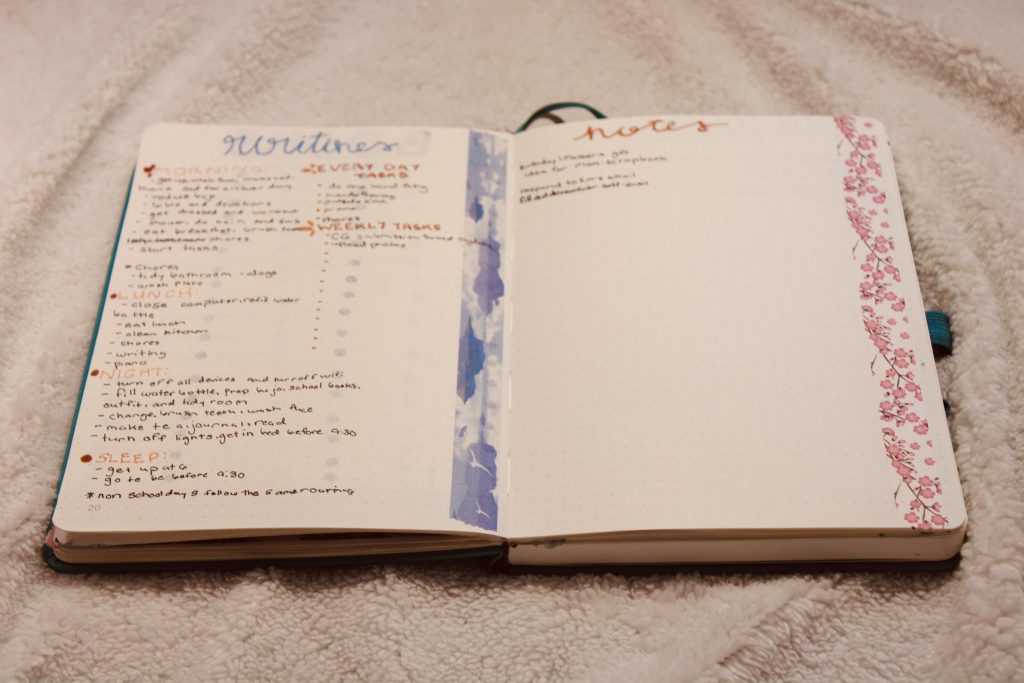 routines
MORNING:
thank God for a new day
- bible and devotions
- get dressed and workout
- eat breakfast, brush
chores
- start tasks
* chores
- tidy bathroom - dogs
- wash
LUNCH:
- close computer, refill water
bottle
- eat lunch
- clean kitchen
- chores
- writing
- piano
NIGHT:
- turn off all devices and turn off wifi
- fill water bottle, prep bujo, school books,
outfit, and tidy room
- change, brush teeth, wash face
- make tea, journal, read
- turn off lights, get in bed before 9:30
SLEEP:
- get up at 6
- go to be before 9:30
* non school days follow the same
20
EVERY DAY
TASKS
- do one kind thing
- outside time
- piano
- chores
WEEKLY TASKS
- upload photos
notes
gift
idea for mom - scrapbook
respond to email